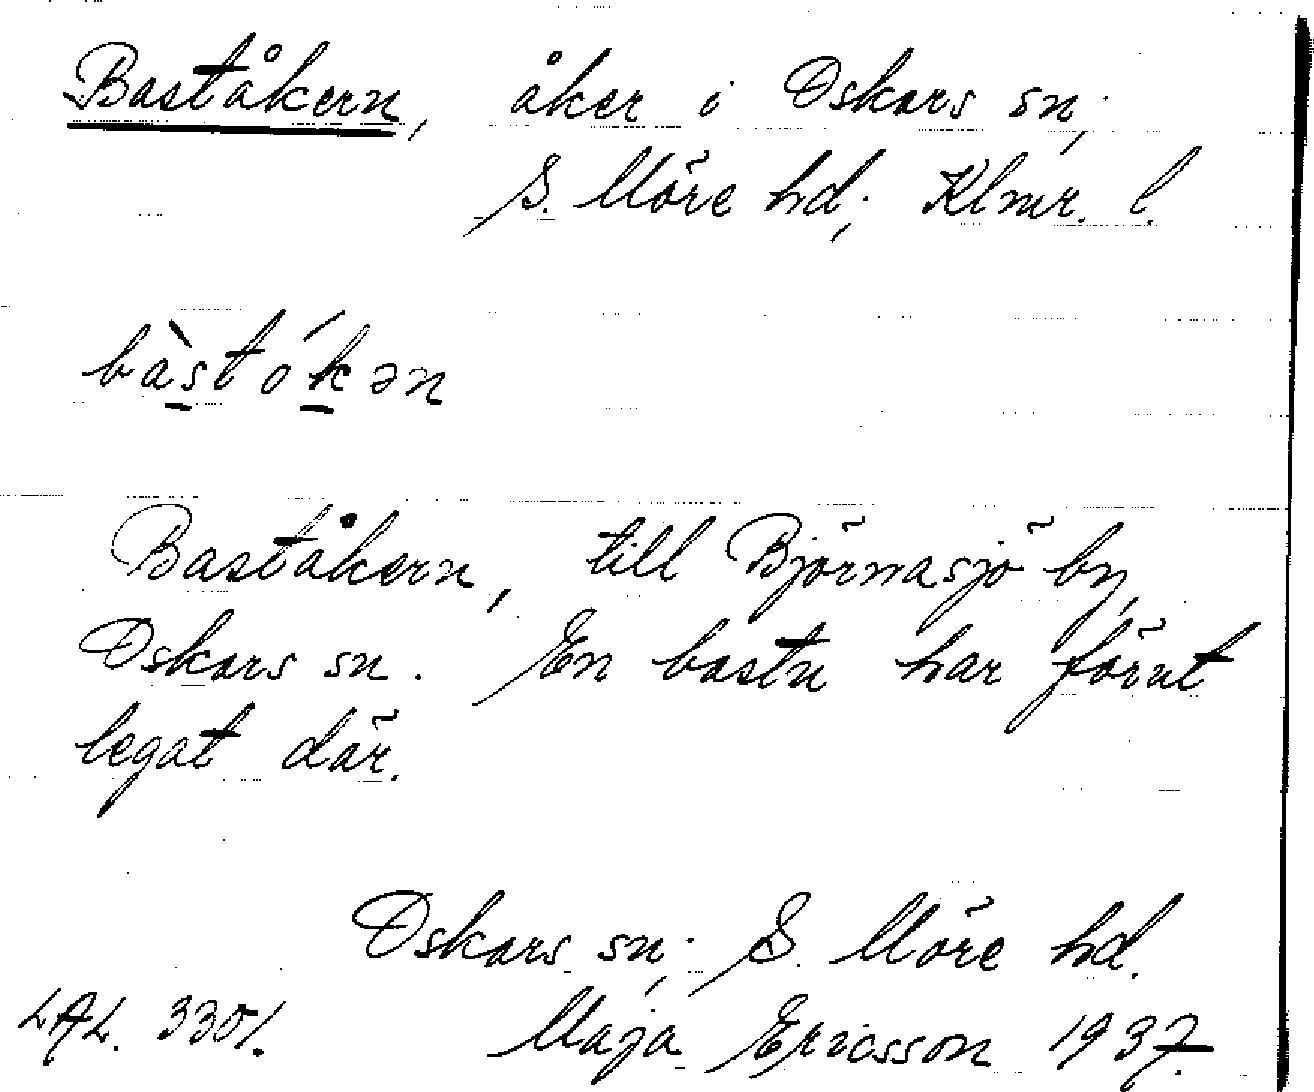 Baståkern, åker i Oskars sn;
S. Möre hd; Klmr. l.
bàstókən
Baståkern, till Björnasjö by,
Oskars sn. En bastu har förut
legat där.
Oskars sn; S. Möre hd.
LAL. 3301. Maja Ericsson 1937.